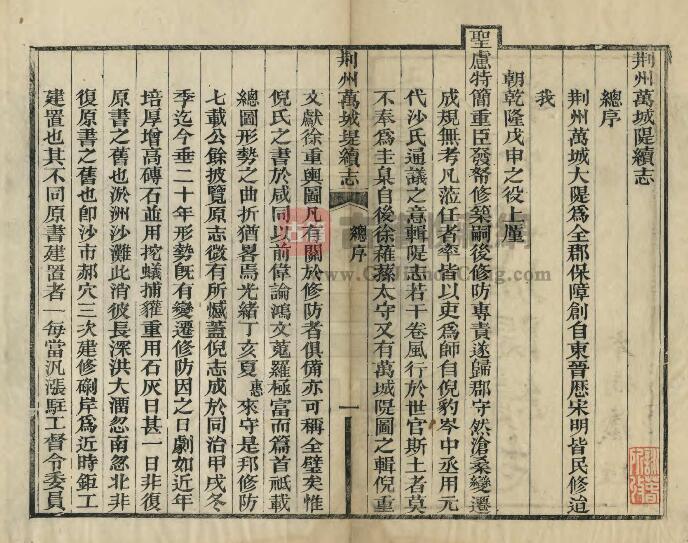 荆州萬城隄續志
總序
荆州萬城大隄爲全郡保障創自東晉歷宋明皆民修迨
我
朝乾隆戊申之役上廑
聖慮特簡重臣發帑修築嗣後修防專責遂歸郡守然滄桑變遷
成規無考凡蒞任者率皆以吏爲師自倪豹岑中丞用元
代沙氏通議之意輯隄志若干卷風行於世官斯土者莫
不奉爲主臬自後徐蘿蓀太守又有萬城隄圖之輯倪重
荆州萬城堤續志
總序
一
文獻徐重輿圖凡有關於修防者俱備亦可稱全璧矣惟
倪氏之書於咸同以前偉論鴻文蒐羅極富而篇首祇載
總圖形勢之曲折猶畧焉光緒丁亥夏惠來守是邦修防
七載公餘披覽原志微有所憾蓋倪志成於同治甲戌冬
季迄今垂二十年形勢旣有變遷修防因之日劇如近年
培厚增高磚石並用挖蟻捕貛重用石灰日甚一日非復
原書之舊也淤洲沙灘此消彼長深洪大溜忽南忽北非
復原書之舊也卽沙市郝穴三次建修剷岸爲近時鉅工
建置也其不同原書建置者一每當汛漲駐工督令委員